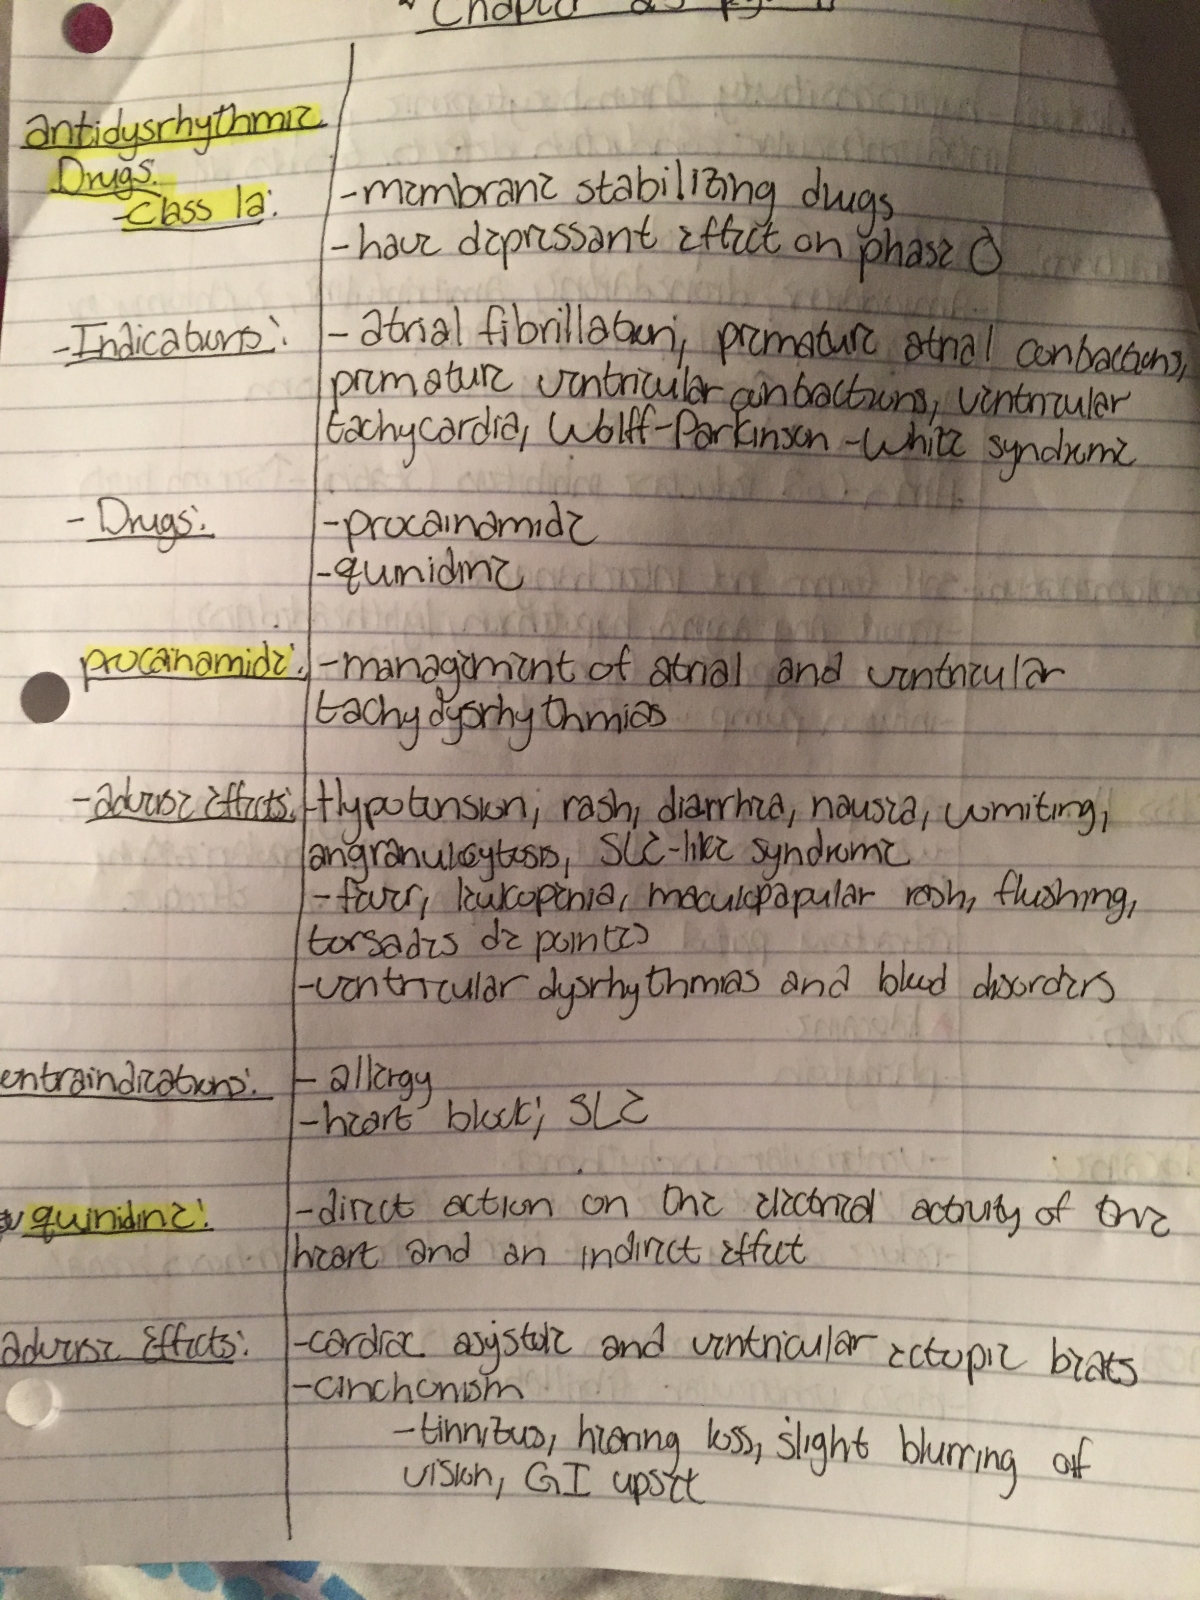 Chapter 25
antidysrhythmic
Drugs:
-Class Ia:
-membrane stabilizing drugs
-have depressant effect on phase 0
-Indications:
- atrial fibrillation, premature atrial contractions,
premature ventricular contractions, ventricular
tachycardia, Wolff-Parkinson-White syndrome
- Drugs:
-procainamide
-quinidine
procainamide:
-management of atrial and ventricular
tachydysrhythmias
-adverse effects:
-Hypotension, rash, diarrhea, nausea, vomiting,
angranulocytosis, SLE-like syndrome
-fever, leukopenia, maculopapular rash, flushing,
torsades de pointes
-ventricular dysrhythmias and blood disorders
ontraindications:
- allergy
-heart block; SLE
quinidine:
-direct action on the electrical activity of the
heart and an indirect effect
adverse effects:
-cardiac asystole and ventricular ectopic beats
-cinchonism
-tinnitus, hearing loss, slight blurring of
vision, GI upset